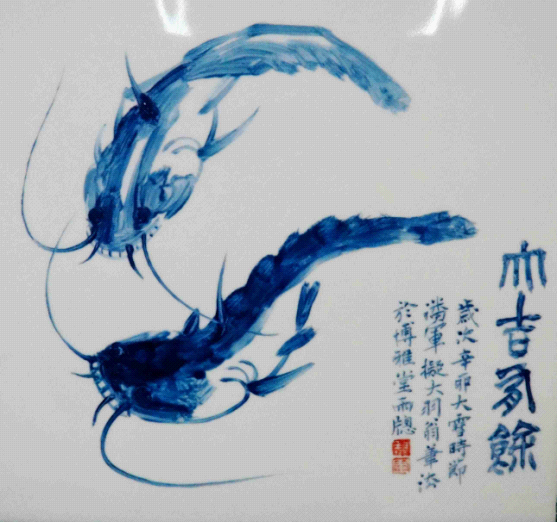 大吉多餘
歲次辛卯大雪時節
滿軍擬大羽翁筆法
於博雅堂雨窗